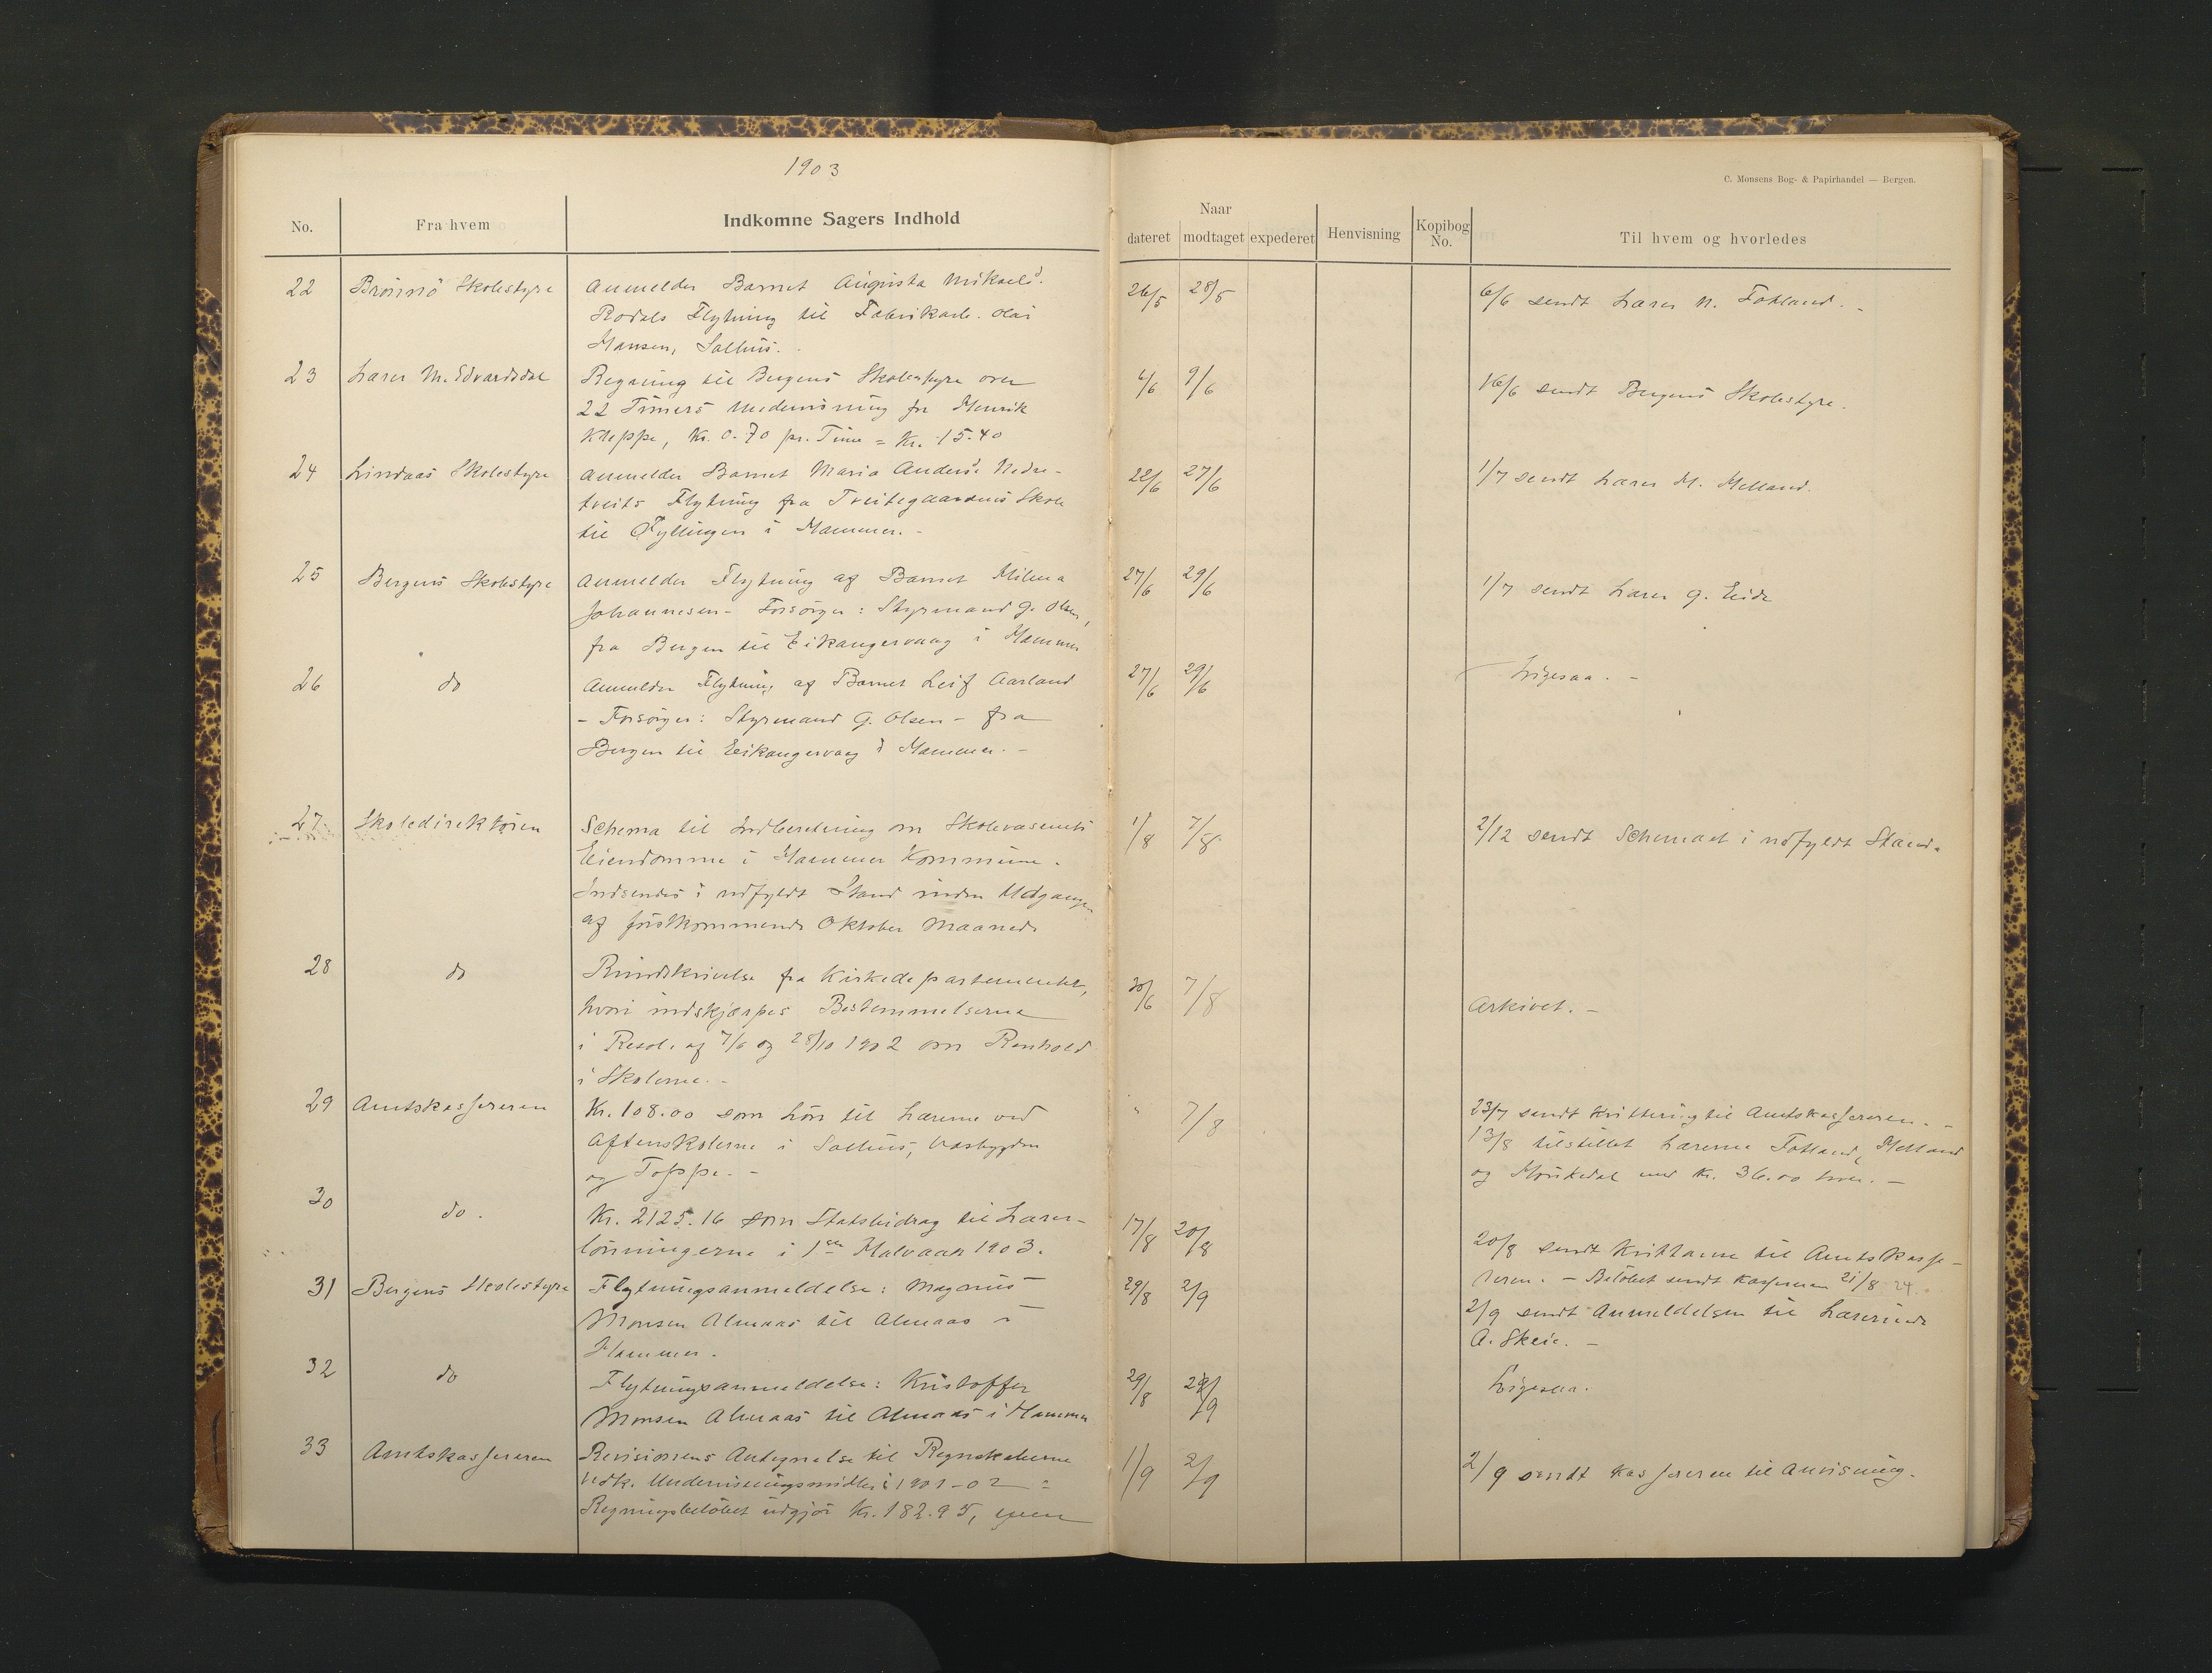 1903
C. Monsens Bog- & Papirhandel — Bergen.
No. Fra hvem Indkomne Sagers Indhold Naar dateret modtaget expederet Henvisning Kopibog No. Til hvem og hvorledes
22 Brönnö Skolestyre Anmelder Barnet Augusta Mikaelsd. 26/5 28/5 6/6 sendt Lærer N. Fotland. -
Rodals Flytning til Fabrikarb. Olai
Hansen, Salhus. -
23 Lærer M. Edvardsdal Regning til Bergens Skolestyre over 6/6 9/6 16/6 sendt Bergens Skolestyre.
22 Timers Undervisning for Henrik
Kleppe, Kr. 0.70 pr. Time = Kr. 15.40
24 Lindaas Skolestyre Anmelder Barnet Maria Andersd. Nedre- 22/6 27/6 1/7 sendt Lærer H. Helland.
tveits Flytning fra Tveitegaardens Skole
til Fyllingen i Hammer. -
25 Bergens Skolestyre Anmelder Flytning af Barnet Hilma 27/6 29/6 1/7 sendt Lærer G. Eide
Johannesen - Forsörger: Styrmand G. Olsen,
fra Bergen til Eikangervaag i Hammer
26 do Anmelder Flytning af Barnet Leif Aarland 27/6 29/6 Ligesaa. -
- Forsörger: Styrmand G. Olsen - fra
Bergen til Eikangervaag i Hammer. -
27 Skoledirektören Schema til Indberetning om Skolevæsenets 1/8 7/8 2/12 sendt Schemaet i udfyldt Stand.
Eiendomme i Hammer Kommune.
Indsendes i udfyldt Stand inden Udgangen
af förstkommende Oktober Maaned.
28 do Rundskrivelse fra Kirkedepartementet, 30/6 7/8 Arkivet. -
hvori indskjærpes Bestemmelserne
i Resol. af 7/6 og 28/10 1902 om Renhold
i Skolerne. -
29 Amtskassereren Kr. 108.00 som Lön til Lærerne ved " 7/8 23/7 sendt Kvittering til Amtskassereren. -
Aftenskolerne i Salhus, 13/8 tilstillet Lærerne Fotland, Helland
og Toppe. - og Mörkedal med Kr. 36.00 hver. -
30 do. Kr. 2125.16 som Statsbidrag til Lærer- 17/8 20/8 20/8 sendt Kvitt. til Amtskasse-
lönningerne i 1ste Halvaar 1903. reren. - Belöbet sendt Kassereren 21/8 24.
31 Bergens Skolestyre Flytningsanmeldelse: Magnus 29/8 2/9 2/9 sendt Anmeldelsen til Lærerinde
Monsen Almaas til Almaas i A. Skeie. -
Hammer.
32 do Flytningsanmeldelse: Kristoffer 29/8 2/9 Ligesaa.
Monsen Almaas til Almaas i Hammer
33 Amtskassereren Revisionens Antegnelse til Regnskaberne 1/9 2/9 2/9 sendt Kassereren til Anvisning.
vedk. Undervisningsmidler i 1901-02
Regningsbelöbet udgjör Kr. 182.95,